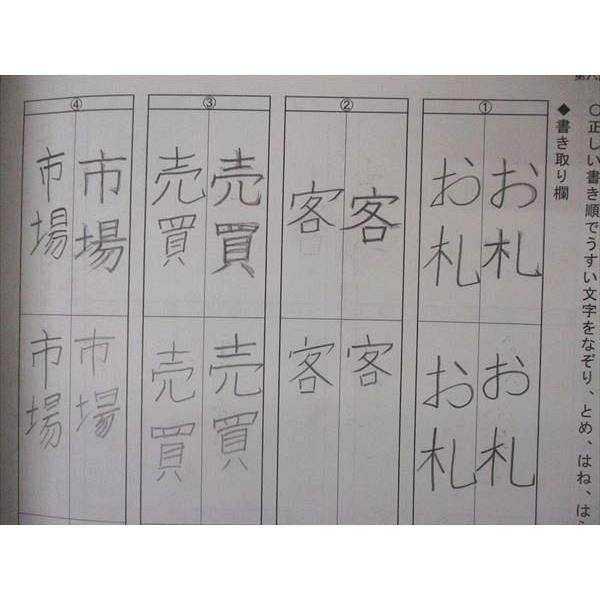 ○正しい書き順でうすい文字をなぞり、とめ、はね、は
◆書き取り欄
①
お札 お札
お札 お札
②
客 客
客 客
③
売買 売買
売買 売買
④
市場 市場
市場 市場